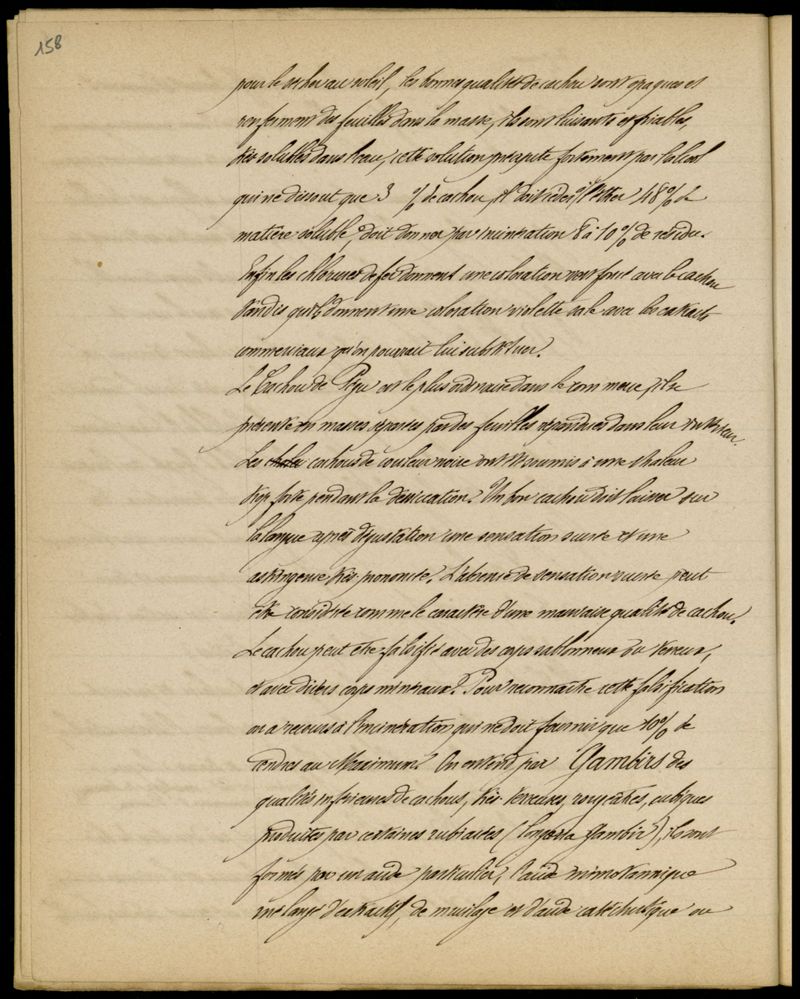 158
pour le sécher au soleil, les bonnes qualités de cachou sont opaques et
renferment des feuilles dans la masse, ils sont luisants et friables,
très solubles dans l'eau, cette solution précipite fortement par l'alcool
qui ne dissout que 3 % de cachou, il doit céder à l'éther 48 % de
matière soluble, doit donner par incinération 8 à 10 % de résidu.
Enfin les chlorures de fer donnent une coloration vert foncé avec le cachou
tandis qu'ils donnent une coloration violette sale avec les extraits
commerciaux qu'on pourrait lui substituer.
Le Cachou de Pégu est le plus ordinaire dans le commerce, il se
présente en masses séparées par des feuilles répandues dans leur intérieur.
Les cachous de couleur noire ont été soumis à une chaleur
trop forte pendant la dessiccation. Un bon cachou doit laisser sur
la langue après dégustation une sensation sucrée et une
astringence très prononcée. L'absence de sensation sucrée peut
être considérée comme le caractère d'une mauvaise qualité de cachou.
Le cachou peut être falsifié avec des corps sablonneux ou terreux,
et avec divers corps minéraux. Pour reconnaître cette falsification
on a recours à l'incinération qui ne doit fournir que 10 % de
cendres au Maximum. On entend par Gambirs des
qualités inférieures de cachous, très terreuses, rougeâtres, cubiques
produites par certaines rubiacées (Gambir), ils sont
formés par un acide particulier, l'acide mimotannique
mélangé d'extractif, de mucilage et d'acide catéchutique ou